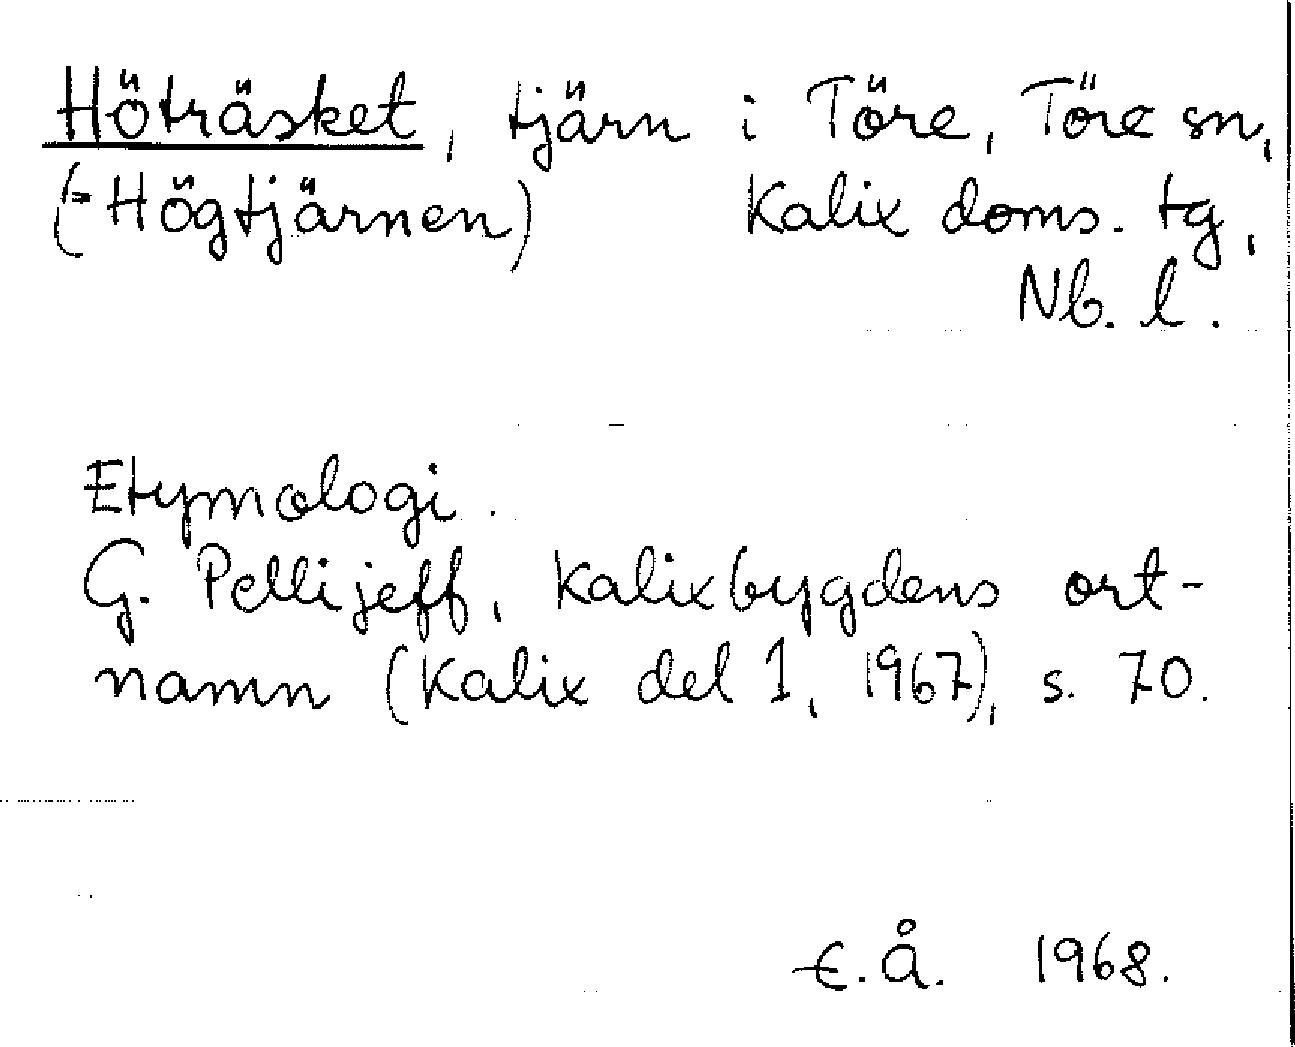 Höträsket, tjärn i Töre, Töre sn,
(= Högtjärnen) Kalix doms. tg,
Nb. l.
Etymologi.
G. Pellijeff, Kalixbygdens ort-
namn (Kalix del 1, 1967), s. 70.
E.Å. 1968.